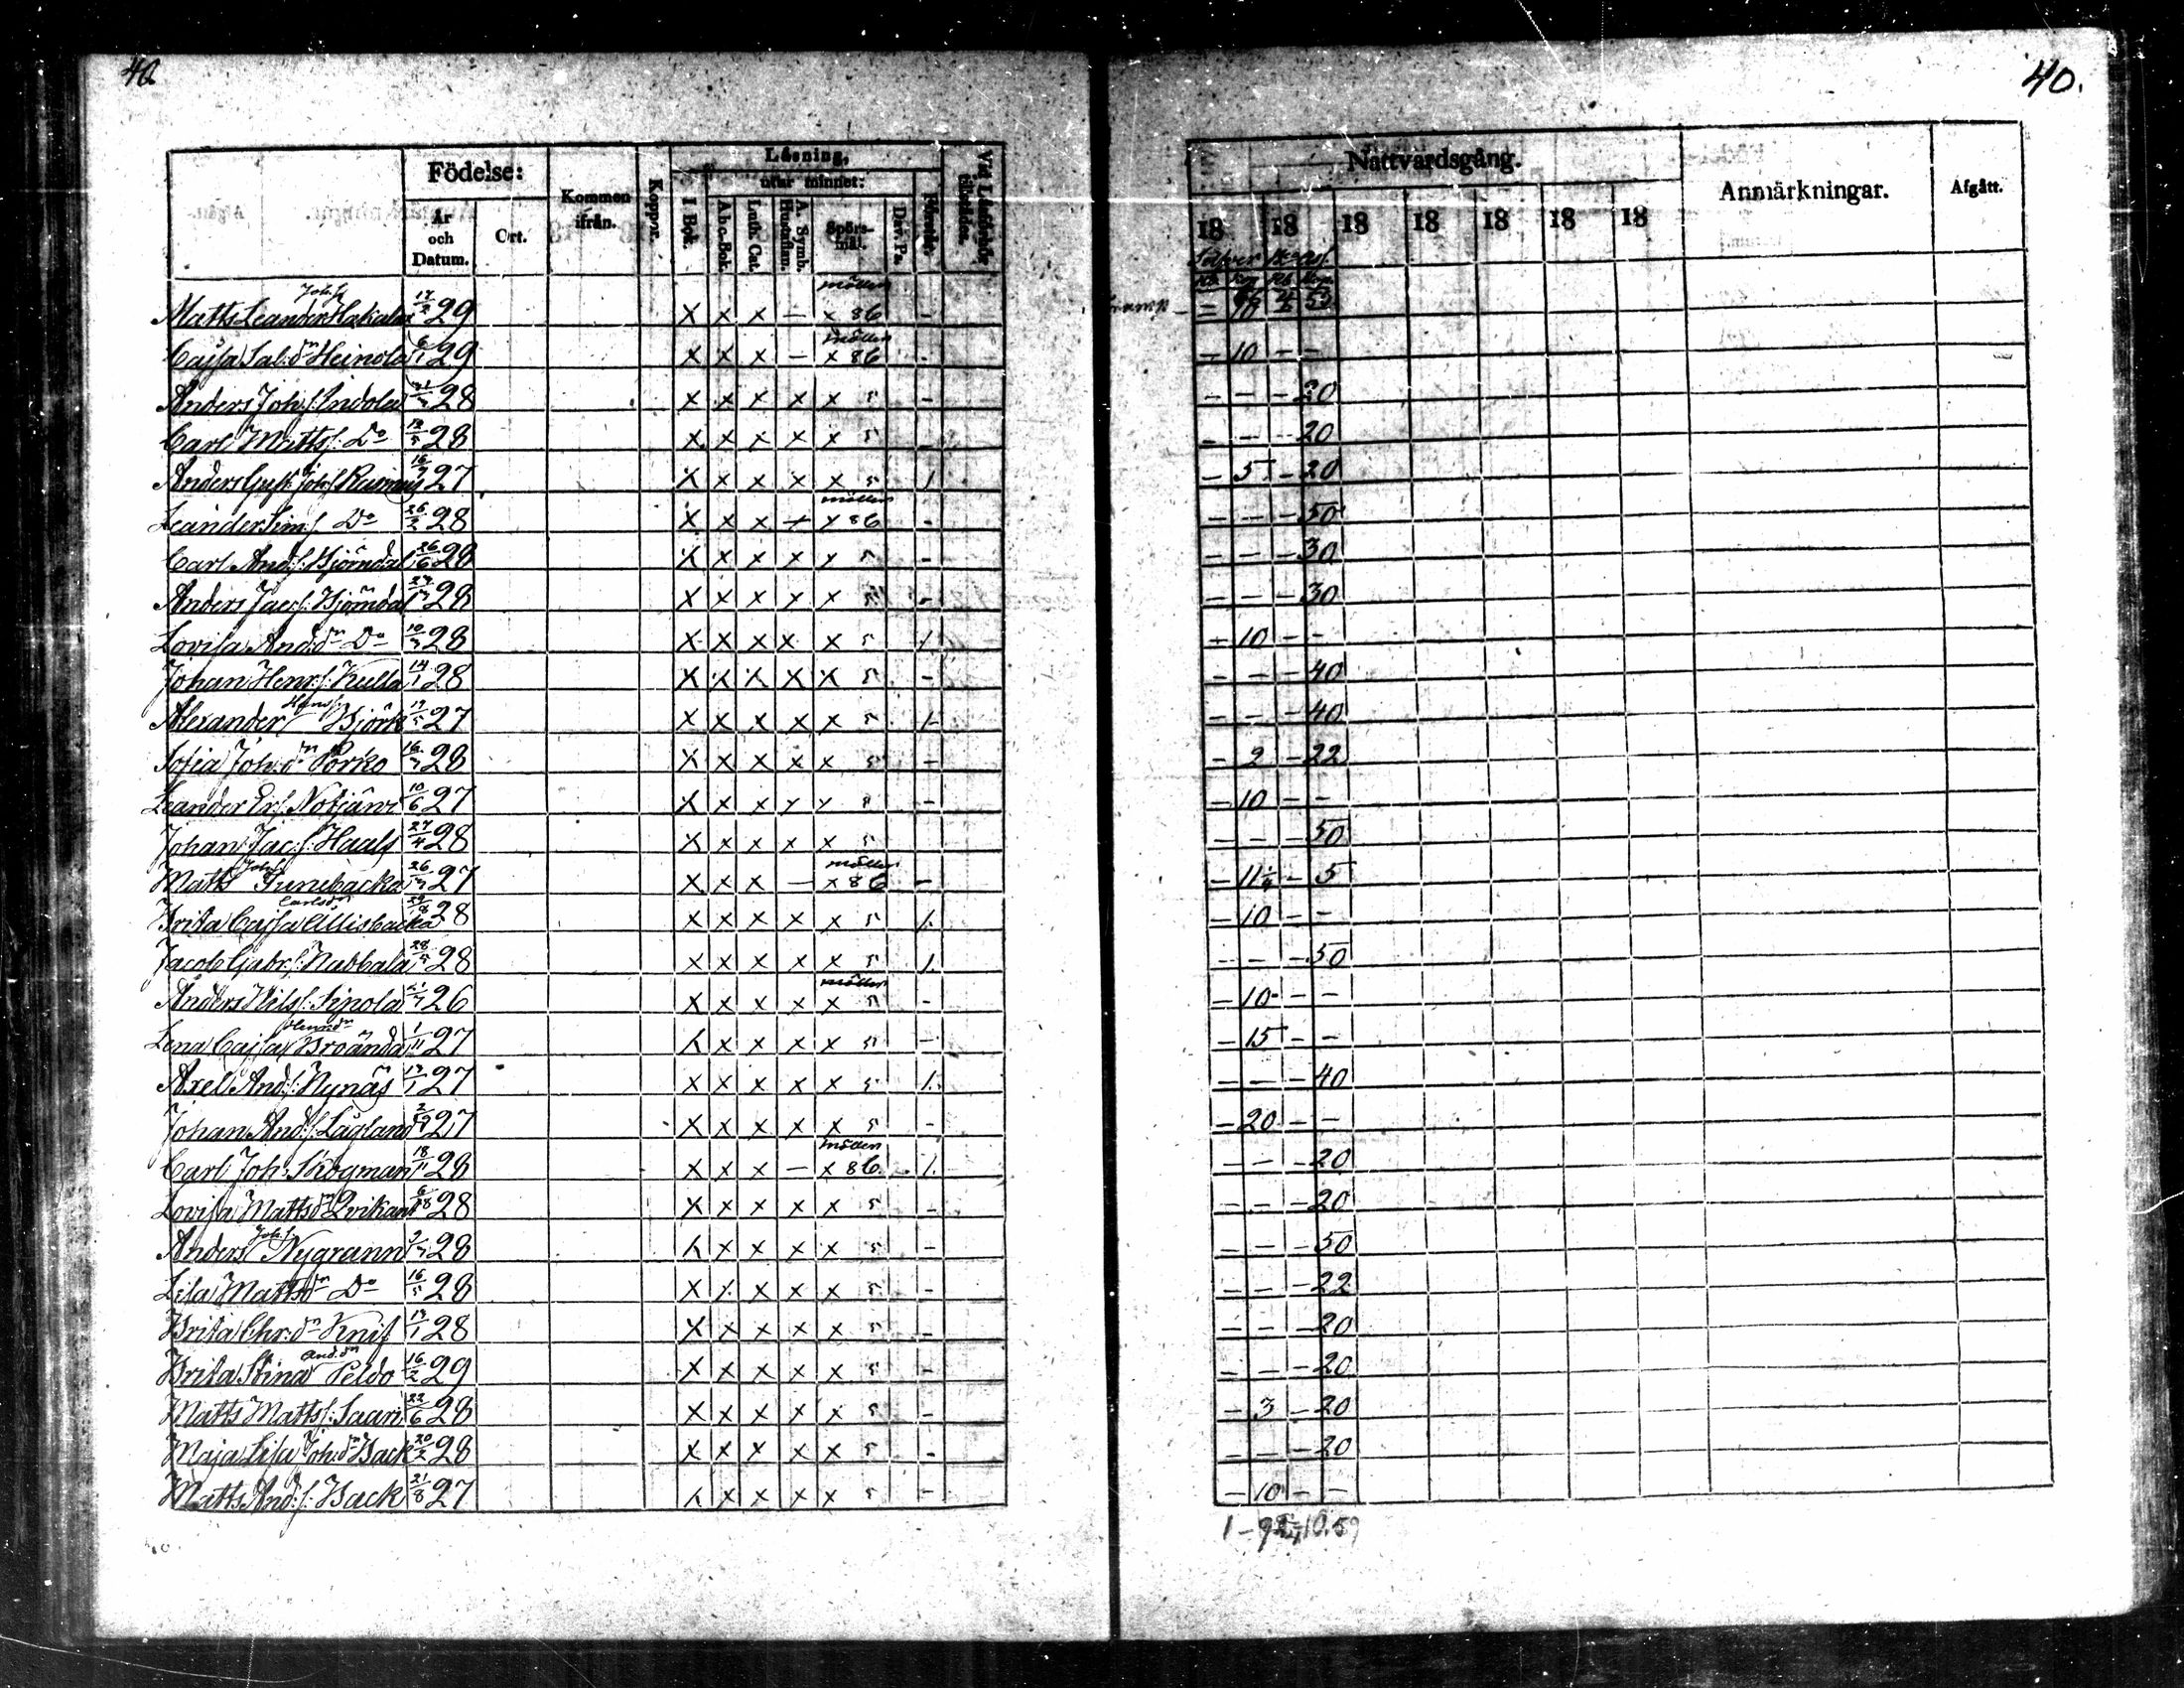 40
Födelse:
År och Datum.
Ort.
Kommen ifrån.
Koppor.
Läsning,
utur minnet:
I Bok.
A.b.c.-Bok.
Luth. Cat.
A. Symb. Hustaflan.
Spörs-mål.
Dav. Ps.
Vid Läseförhör tillstädes.
Matts Leander Joh:s: Hakala 17/2 29 X x x — x 86 möllers -
Cajsa Sal:dr Heinola 6/1 29 X x x — x 86 möllers -
Anders Joh:s: Indola 28 X x x x x 5 -
Carl Matts: Do 28 X x x x x 5 -
Anders Gust: Joh:s: 27 X x x x x 5 1
Leander Sim:s: Do 26/2 28 X x x + x 86 möllers -
Carl And:s: Björndal 26/6 28 X x x x x 5 -
Anders Jac:s: Björndal 28 X x x x x 5 -
Lovisa And:dr Do 28 X x x x x 5 1
Johan Henr:s: Kulla 14/1 28 X x x x x 5 -
Alexander Björk 27 X x x x x 5 1
Sofia Joh:dr Porko 28 X x x x x 5 -
Leander Er:s: 10/6 27 X x x x x -
Johan Jac:s: Haals 27/4 28 X x x x x 5
Matts Joh:s: Tunebacka 27 X x x — x 86 möllers -
Brita Cajsa Carlsdr Allisbacka 28 X x x x x 5 1.
Jacob Gabr:s: Nabbala 28 x x x x x 5 1.
Anders Nils: Sipola 26 X x x x x 5 möllers -
Lena Cajsa Henr:dr Broända 1/11 27 X x x x x 5 -
Axel And:s: Nynäs 27 X x x x x 5 1.
Johan And:s: Lågland 27 X x x x x 5 -
Carl Joh: Skogman 18/11 28 X x x — x 86 möllers 1.
Lovisa Matts:dr Qvikant 6/8 28 X x x x x 5 -
Anders Joh:s: Nygrann 28 X x x x x 5 -
Lisa Matts:dr Do 16/5 28 X x x x x 5 -
Brita Chr:dr Knif 28 X x x x x 5 -
Brita Stina And:dr Peldo 16/2 29 X x x x x 5 -
Matts Matts: Saari 22/6 28 X x x x x 5 -
Maja Lisa Joh:dr Back 20/2 28 X x x x x 5 -
Matts And:s: Back 21/8 27 X x x x x 5 -
40.
Nattvardsgång.
Anmärkningar.
Afgått.
18 18 18 18 18 18 18
- 10 - -
- - - 20
- - - 20
- 5 - 20
- - - 50
- - - 30
- - - 30
- 10 - -
- - - 40
- - - 40
- 2 - 22
- 10 - -
- - - 50
- 11 - 5
- 10 - -
- - - 50
- 10 - -
- 15 - -
- - - 40
- 20 - -
- - - 20
- - - 20
- - - 50
- - - 22
- - - 20
- - - 20
- 3 - 20
- - - 20
- 10 - -
10.59